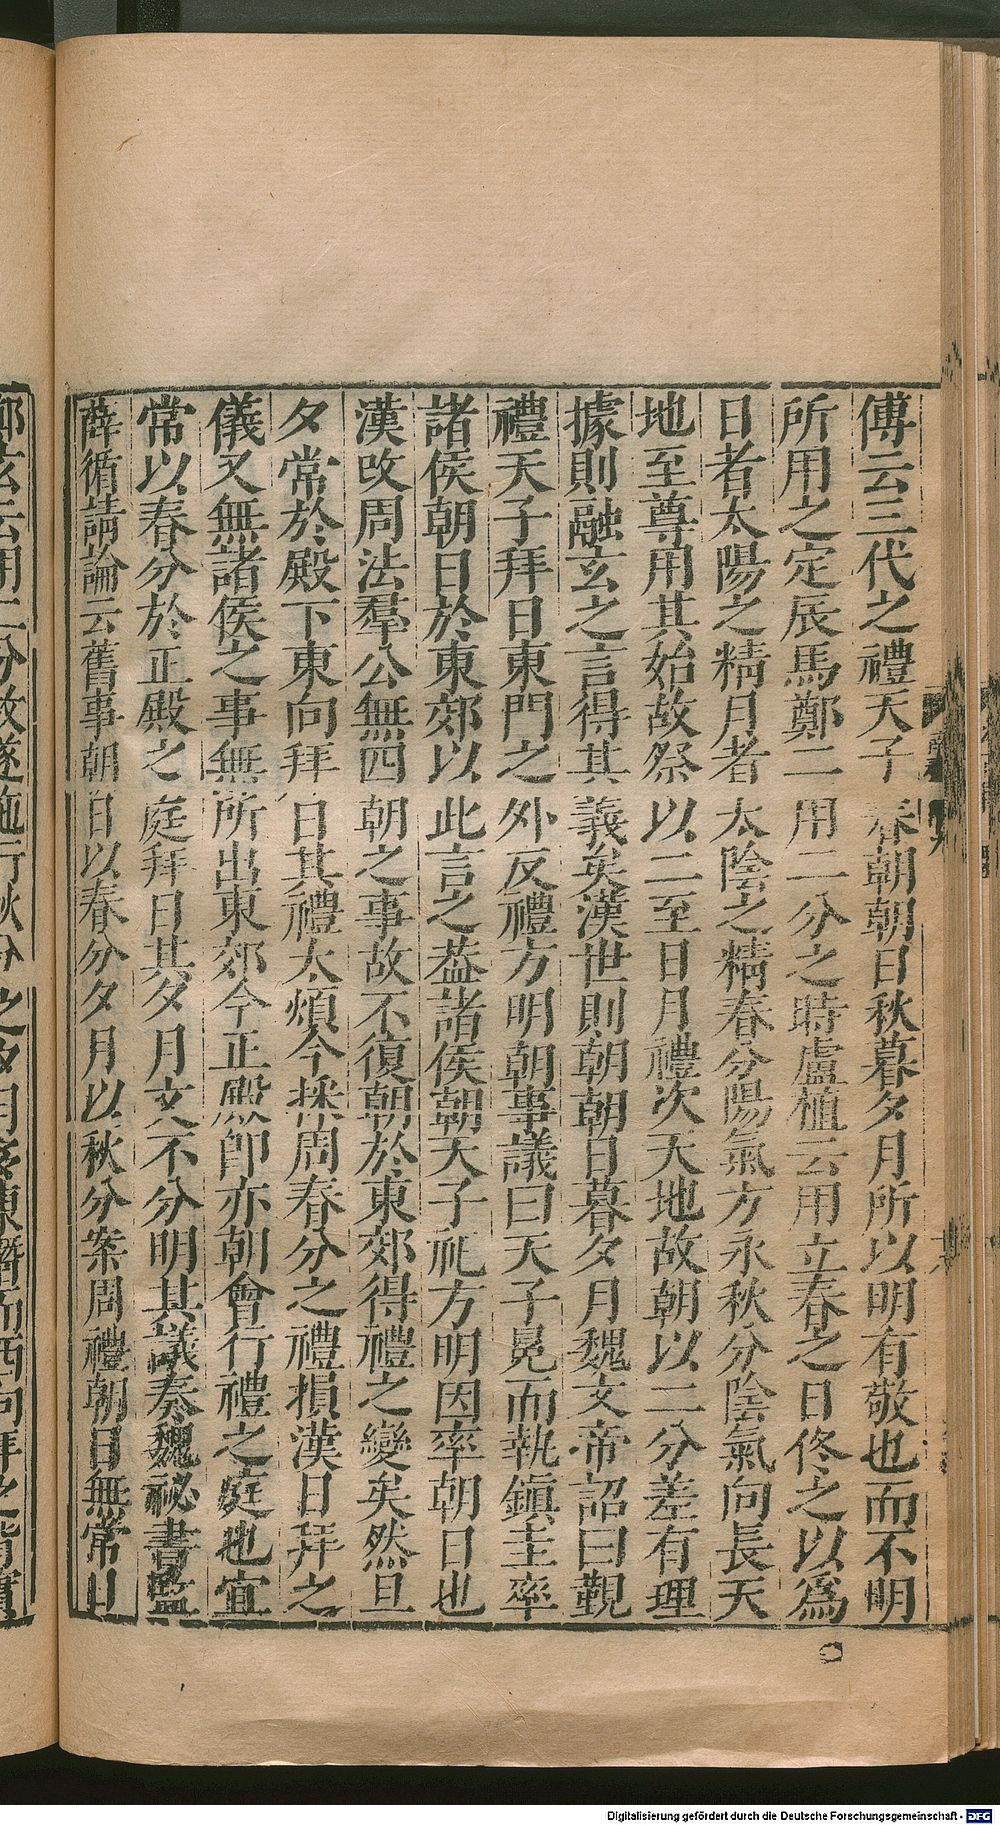 傅云三代之禮天子春朝朝日秋暮夕月所以明有敬也而不明
所用之定辰馬鄭二用二分之時盧植云用立春之日佟之以爲
日者太陽之精月者太陰之精春分陽氣方永秋分陰氣向長天
地至尊用其始故祭以二至日月禮次天地故朝以二分差有理
據則融玄之言得其義矣漢世則朝朝日暮夕月魏文帝詔曰覲
禮天子拜日東門之外反禮方明朝事議曰天子冕而執鎮圭率
諸侯朝日於東郊以此言之葢諸侯朝天子祀方明因率朝日也
漢改周法羣公無四朝之事故不復朝於東郊得禮之變矣然旦
夕常於殿下東向拜日其禮太煩今採周春分之禮損漢日拜之
儀又無諸侯之事無所出東郊今正殿卽亦朝會行禮之庭也宜
常以春分於正殿之庭拜日其夕月文不分明其議奏魏祕書監
薛循請論云舊事朝日以春分夕月以秋分案周禮朝日無常日
云用二分故遂施行秋分之夕月東而西向拜之背實
Digitalisierung gefördert durch die Deutsche Forschungsgemeinschaft - DFG